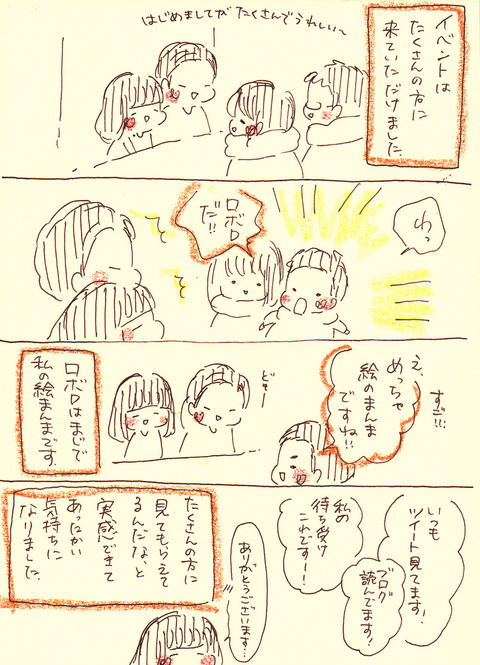 イベントは
たくさんの方に
来ていただけました。
はじめましてがたくさんでうれしい〜
わっ
ロボロ
だ!!
え、
めっちゃ
絵のまんま
ですね!!
すご!!!
どもー
ロボロはまじで
私の絵まんまです。
いつも
ツイート見てます!
ブログ
読んでます!
私の
待ち受け
これですー!
ありがとうございます…
たくさんの方に
見てもらえて
るんだな、と
実感できて
あったかい
気持ちに
なりました。